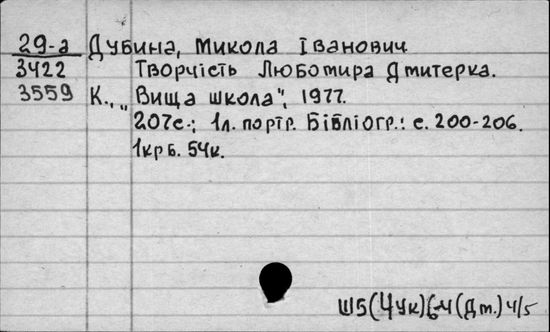 29-а Дубина, Микола Іванович
3422 Творчість Любомира Дмитерка.
3559 К., „Вища школа", 1977.
207с.; 1л. портр. Бібліогр.: с. 200-206.
1крб. 54к.
Ш5(4Ук)6-4(Дм.) 4/5